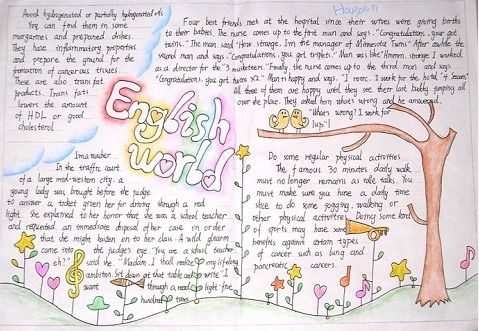 Avoid hydrogenated or partially hydrogenated oils
You can find them in some
margarines and prepared dishes.
They have inflammatory properties
and prepare the ground for the
formation of cancerous tissues.
These are also trans fat
products. Trans fats
lowers the amount
of HDL or good
cholesterol
Happen
Four best friends met at the hospital since their wives were giving births
to their babies. The nurse comes up to the first man and says, "Congratulations, your got
twins." The man said "How strange. I'm the manager of Minnesota Twins." After awhile the
second man and says, "Congratulations, you got triplets." Man was like "Hmmm, strange I worked
as a director for the "3 musketeers." Finally the nurse comes up to the third man, and says
"Congratulations, you got twins x2." Man is happy and says, "I work for the hotel "4 seasons"
All three of them are happy until they see their last buddy jumping all
over the place. They asked him what's wrong and he answered,
"What's wrong? I work for
7up"!
English
world
I'm a teacher
In the traffic court
of a large mid-western city, a
young lady was brought before the judge
to answer a ticket given her for driving through a red
light. She explained to her honor that she was a school teacher
and requested an immediate disposal of her case in order
that she might hasten on to her class. A wild gleam
came into the judge's eye. "You are a school teacher,
eh?" said he. "Madam, I shall realize my lifelong
ambition. Sit down at that table and write 'I
want through a red light' five
hundred times
Do some regular physical activities
The famous 30 minutes daily walk
must no longer remains as role talks. You
must make sure you have a daily time
slice to do some jogging, walking or
other physical activities. Doing some kind
of sports may have some
benefits against certain types
of cancer such as lung and
pancreatic cancers.